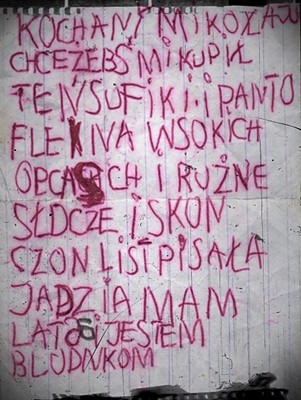 KOCHANY MIKOŁAJU
CHCEŻEBŚ MI KUPIŁ
TEN SUFIK I I PANTO
FLEK I NA WSOKICH
OPCASCH I RUŻNE
SŁDCZE I SKON
CZON LIST PISAŁA
JADZIA MAM
LAT 6 JESTEM
BLUDNKOM